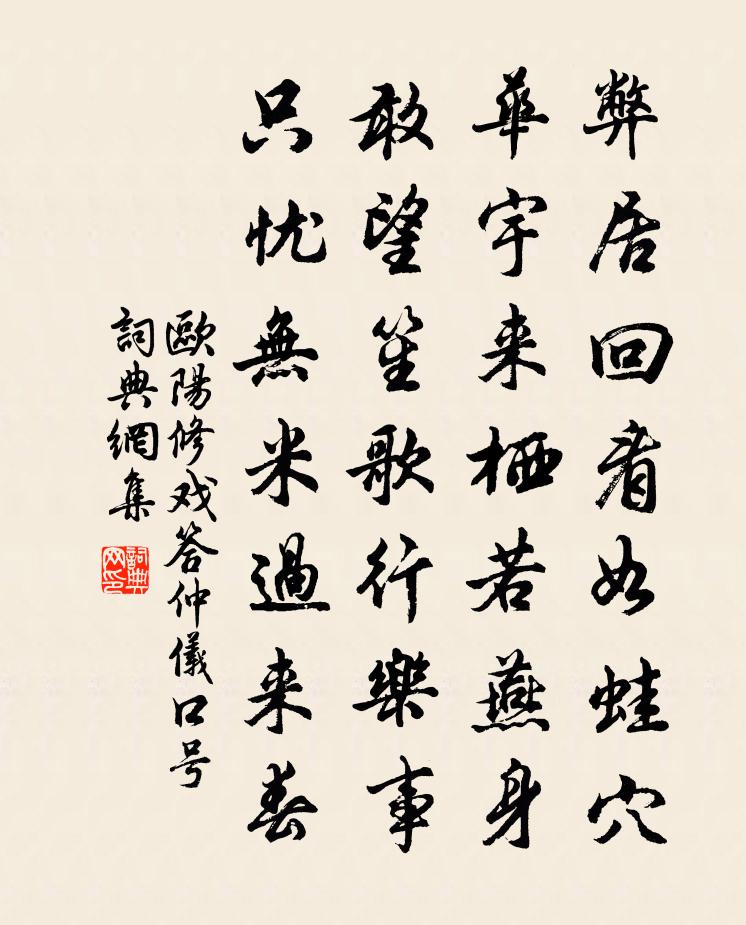 弊居回看如蛙穴
華宇来栖若燕身
敢望笙歌行樂事
只忧無米過来春
歐陽修戏答仲儀口号
詞典網集
詞典网印